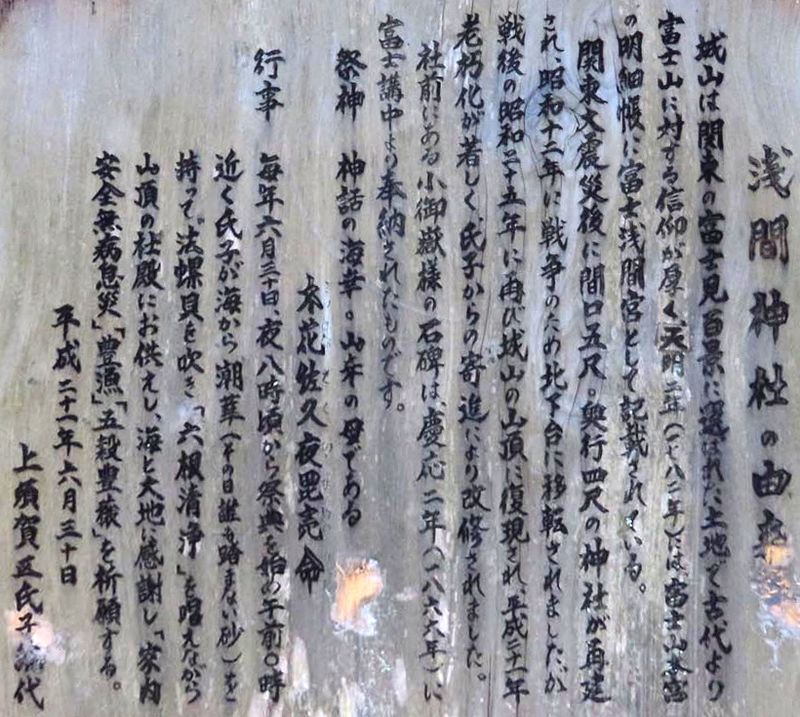 浅間神社の由来
城山は関東の富士見百景に選ばれた土地で古代より
富士山に対する信仰が厚く、天明二年(一七八二年)には富士山本宮
の明細帳に富士浅間宮として記載されている。
関東大震災後に間口五尺。奥行四尺の神社が再建
され、昭和十二年に戦争のため北下台に移転されましたが
戦後の昭和二十五年に再び城山の山頂に復現され、平成二十一年
老朽化が著しく氏子からの寄進により改修されました。
社前にある小御嶽様の石碑は、慶応二年(一八六六年)に
富士講中より奉納されたものです。
祭神 神話の海幸。山幸の母である
木花佐久夜毘売命
行事 毎年六月三十日、夜八時頃から祭典を始め午前〇時
近く氏子が海から潮草(その日誰も踏まない砂)を
持って。法螺貝を吹き「六根清浄」を唱えながら
山頂の社殿にお供えし、海と大地に感謝し「家内
安全無病息災」「豊漁」「五穀豊穣」を祈願する。
平成二十一年六月三十日
上須賀区氏子総代